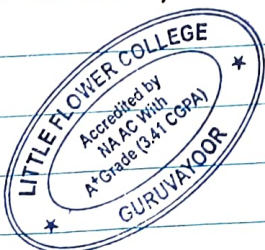 LITTLE FLOWER COLLEGE
Accredited by
NAAC With
A+Grade (3.41 CGPA)
GURUVAYOOR